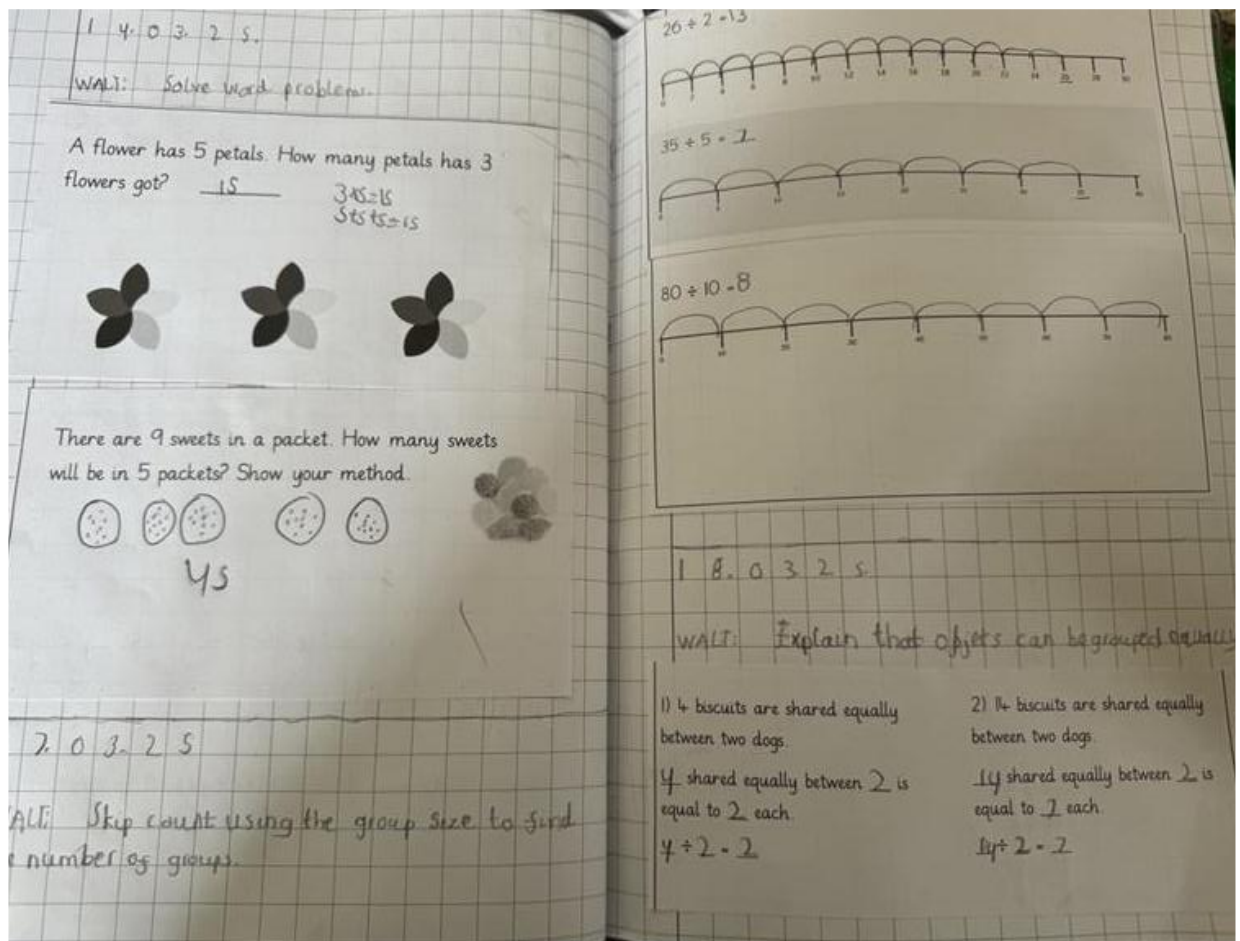 14.03.25.
WALT: Solve word problems.
A flower has 5 petals. How many petals has 3
flowers got? 15
3×5=15
5+5+5=15
There are 9 sweets in a packet. How many sweets
will be in 5 packets? Show your method.
45
7.03.25
ALT: Skip count using the group size to find
number of groups.
26 ÷ 2 = 13
0 2 4 6 8 10 12 14 16 18 20 22 24 26 28 30
35 ÷ 5 = 7
0 5 10 15 20 25 30 35 40
80 ÷ 10 = 8
0 10 20 30 40 50 60 70 80
18.03 25
WALT: Explain that objets can be grouped equally
1) 4 biscuits are shared equally
between two dogs.
4 shared equally between 2 is
equal to 2 each.
4 ÷ 2 = 2
2) 14 biscuits are shared equally
between two dogs.
14 shared equally between 2 is
equal to 7 each.
14 ÷ 2 = 7